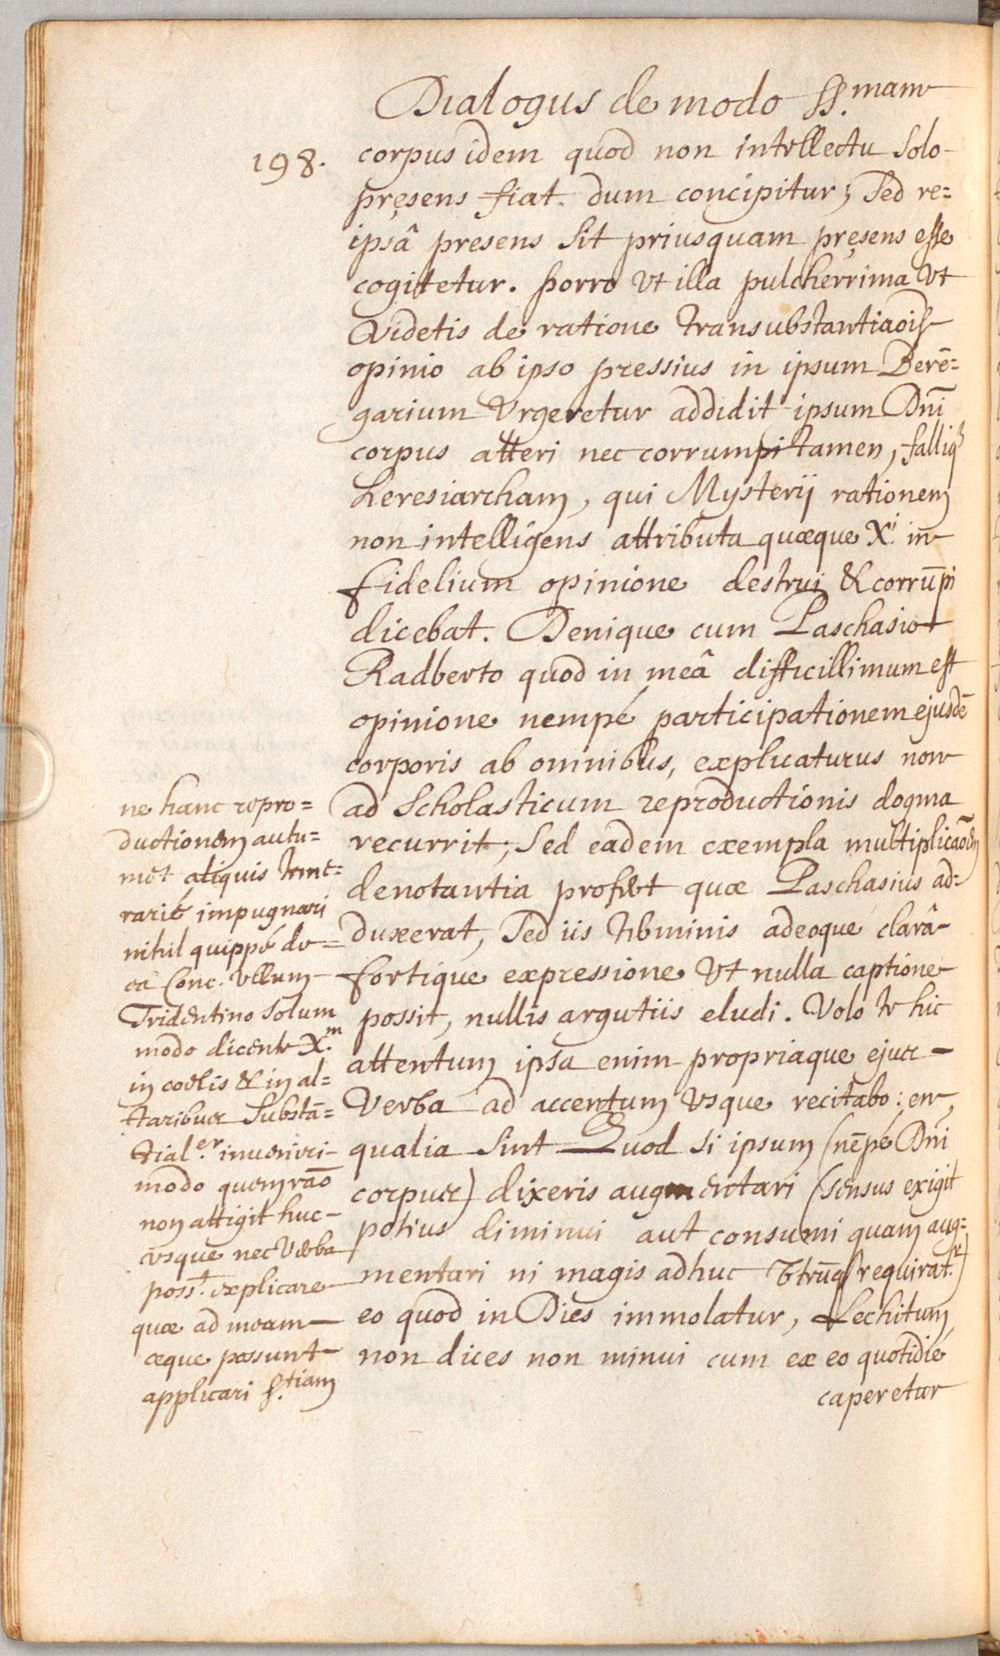 Dialogus de modo SS.mam
198.
corpus idem quod non intellectu solo
pręsens fiat. dum concipitur; sed re=
ipsâ presens sit priusquam pręsens esse
cogitetur. Porro Vt illa pulcherrima Vt
Videtis de ratione transubstantiaõis
opinio ab ipso pressius in ipsum Berē=
garium Vrgeretur addidit ipsum Dnī
corpus atteri nec corrumpi tamen, falliq;
heresiarcham, qui Mysterij rationem
non intelligens attributa quæque X.i in
fidelium opinione destrui & corrūpi
dicebat. Denique cum Paschasio
Radberto quod in meâ difficillimum est
opinione nempé participationem ejusdē
corporis ab omnibus, explicaturus non
ad Scholasticum reproductionis dogma
recurrit; Sed eadem exempla multiplicaõem
denotantia profert quæ Paschasius ad=
duxerat, Sed iis terminis adeoque clarâ
fortique expressione Vt nulla captione
possit, nullis argutiis eludi. Volo te hic
attentum ipsa enim propriaque ejus
Verba ad accentum Vsque recitabo: en
qualia sint Quod si ipsum (nēpé Dnī
corpus) dixeris augmentari (sensus exigit
potius diminui aut consumi quam aug=
mentari ni magis adhuc Vtrūq; requirat.r)
eo quod in Dies immolatur, Lechitum
non dices non minui cum ex eo quotidie
caperetur
ne hanc repro=
ductionem autu=
met aliquis teme=
rarié impugnari
nihil quippé de=
ea Conc. Vllum
Tridentino solum
modo dicente X.m
in coelis & in al=
taribus substā=
tial.er inveniri
modo quem raõ
non attigit huc
usque nec Verba
poss.t explicare
quæ ad meam
æque possunt
applicari s.tiam